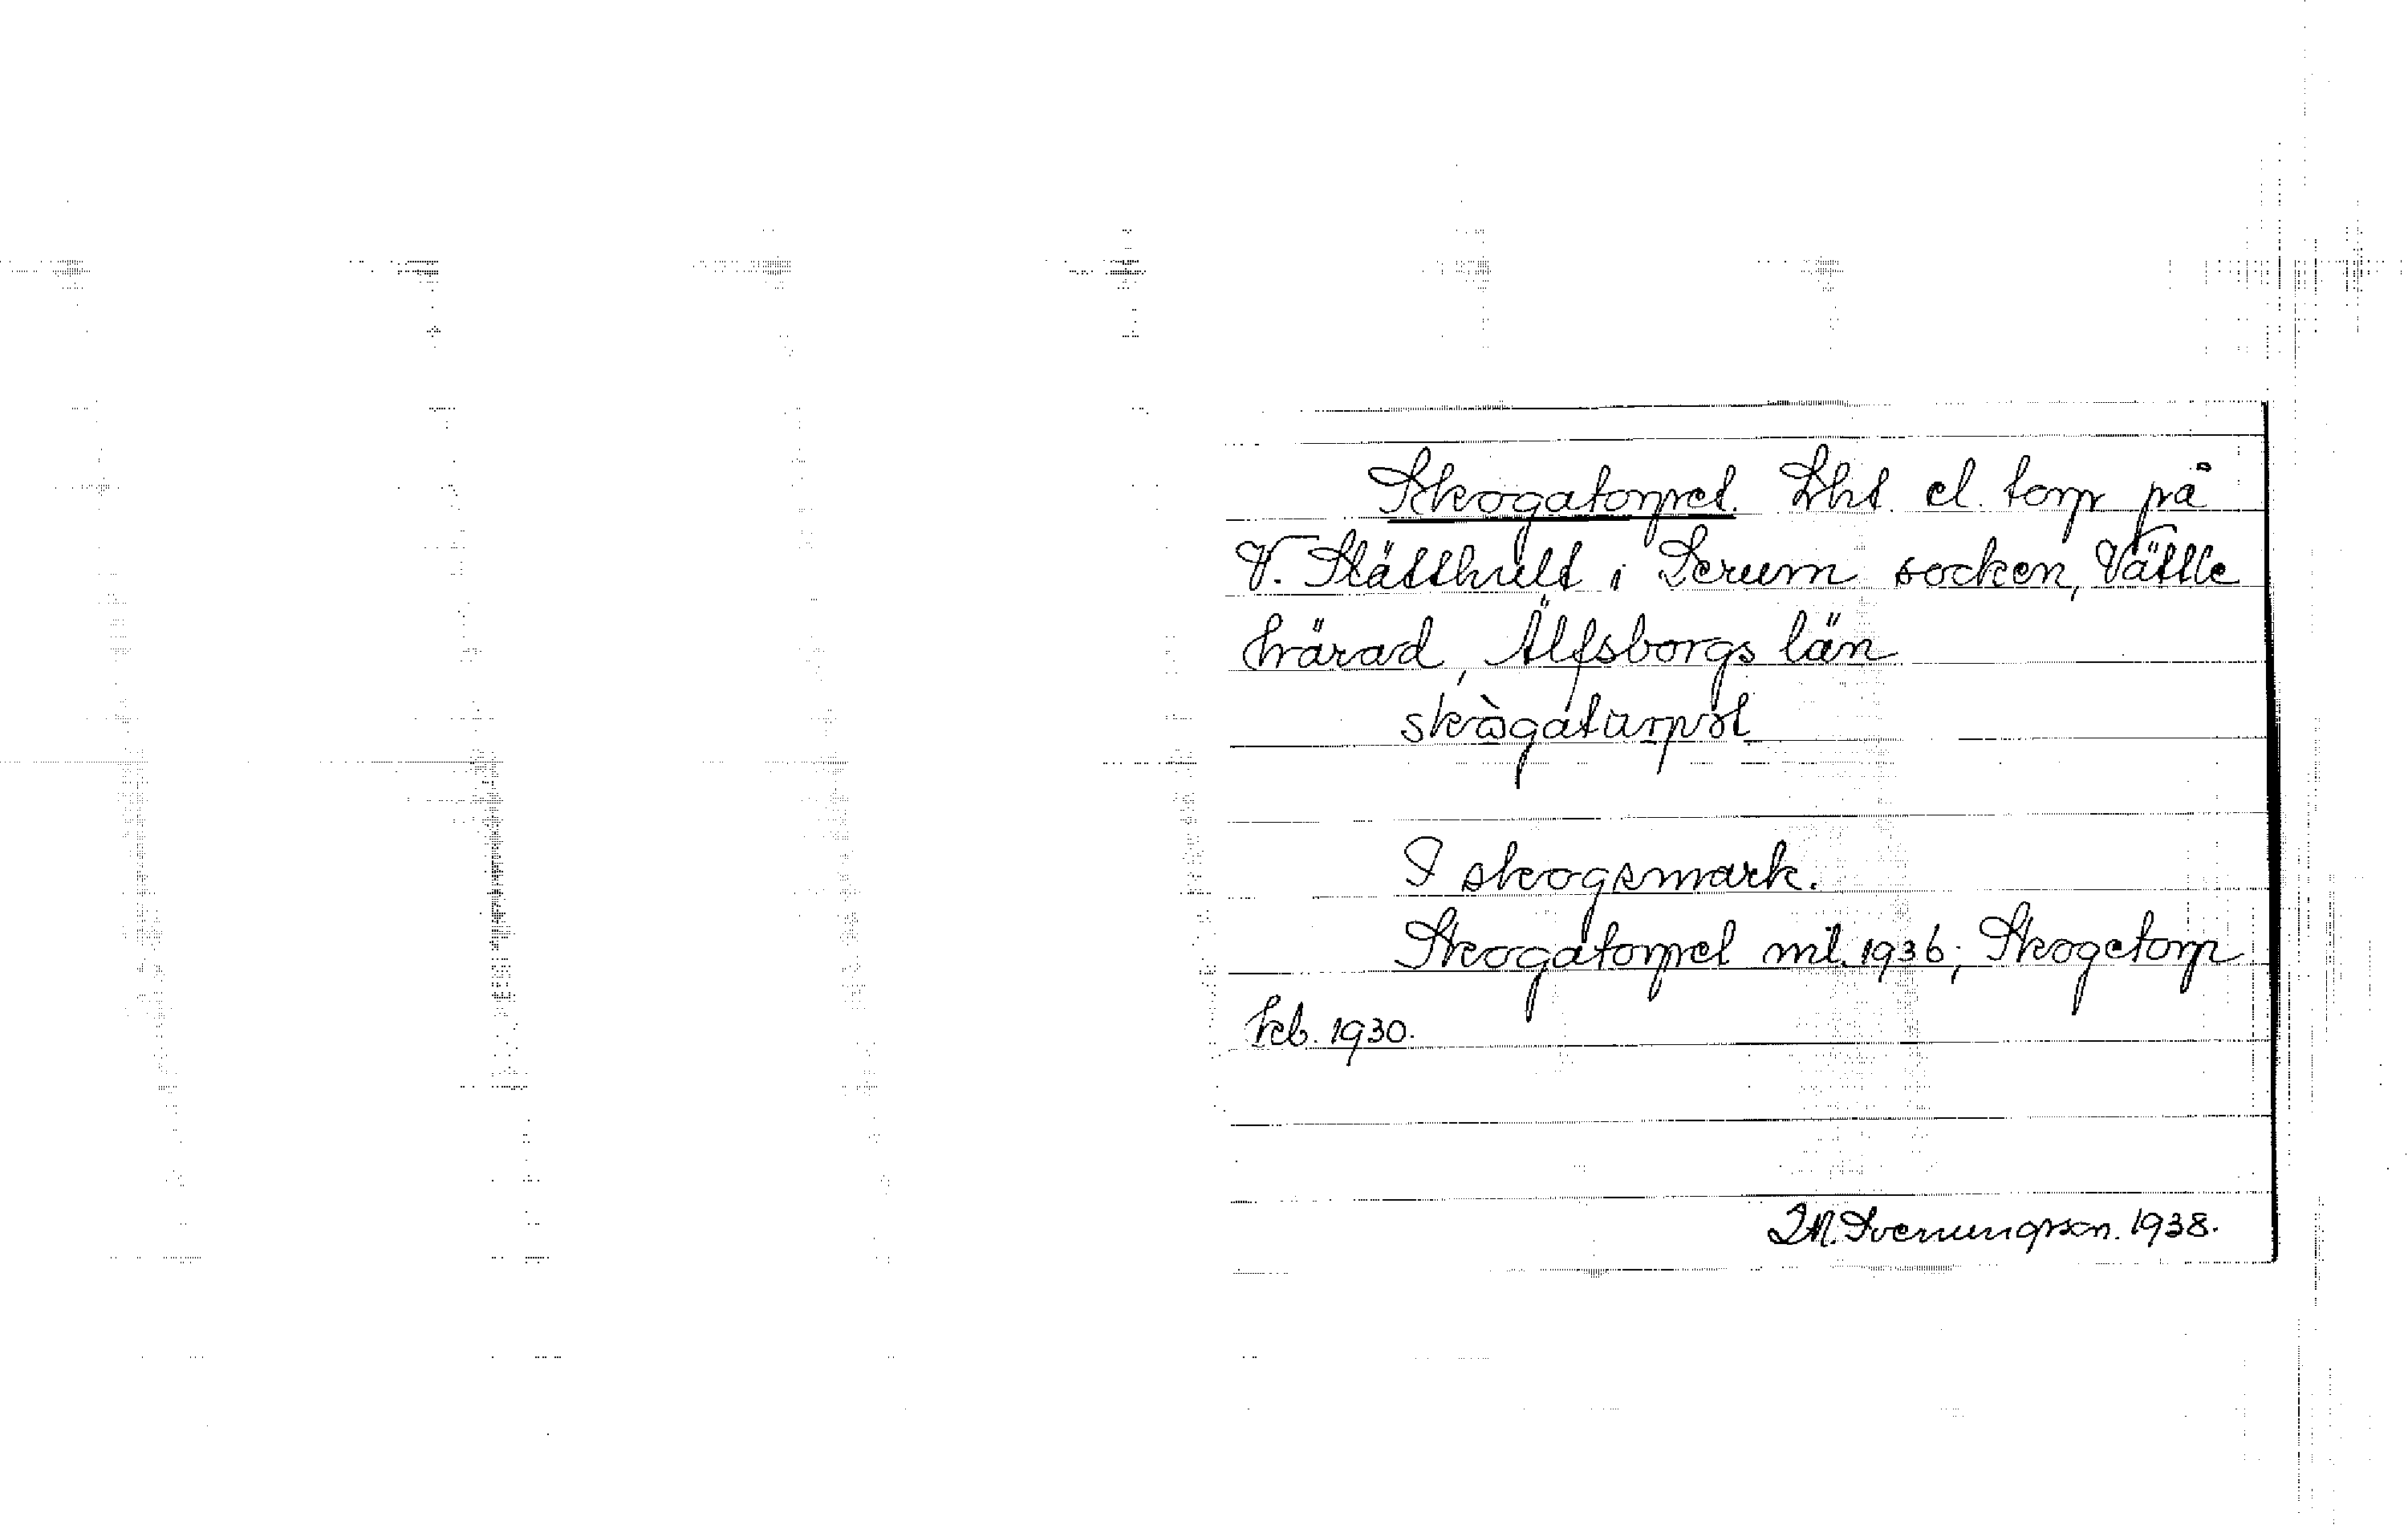 Skogatorpet. Lht. el. torp på
V. Slätthult i Lerum socken, Vättle
härad, Älfsborgs län
skògatùrpət
I skogsmark.
Skogatorpet mtl. 1936; Skogetorp
kb. 1930.
I.M. Svenungsson. 1938.